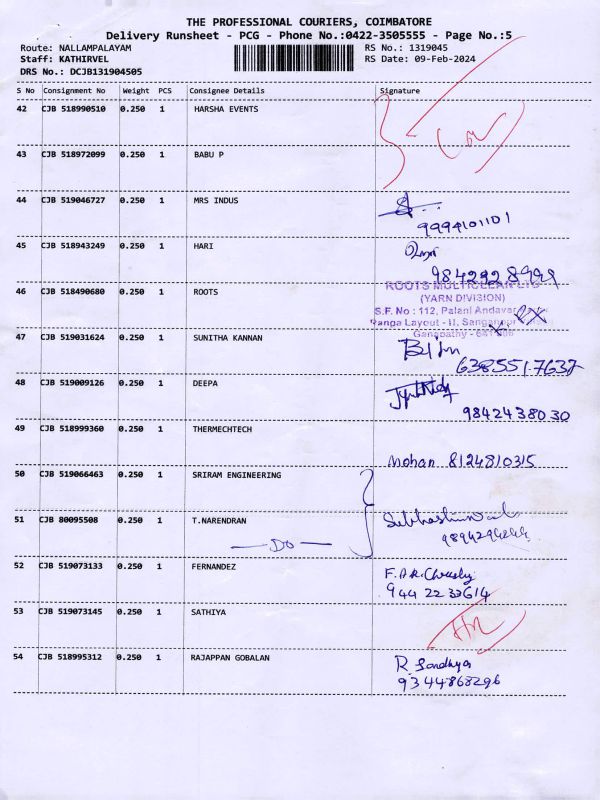 THE PROFESSIONAL COURIERS, COIMBATORE
Delivery Runsheet - PCG - Phone No.:0422-3505555 - Page No.:5
Route: NALLAMPALAYAM RS No.: 1319045
Staff: KATHIRVEL RS Date: 09-Feb-2024
DRS No.: DCJB131904505
S No Consignment No Weight PCS Consignee Details Signature
42 CJB 518990510 0.250 1 HARSHA EVENTS
43 CJB 518972099 0.250 1 BABU P
44 CJB 519046727 0.250 1 MRS INDUS
9994101101
45 CJB 518943249 0.250 1 HARI
46 CJB 518490680 0.250 1 ROOTS
ROOTS MULTICLEAN LTD
(YARN DIVISION)
S.F. No : 112, Palani Andavar
Ranga Layout - II, Sanganoor
Ganapathy -
47 CJB 519031624 0.250 1 SUNITHA KANNAN
6385517637
48 CJB 519009126 0.250 1 DEEPA
9842438030
49 CJB 518999360 0.250 1 THERMECHTECH
Mohan 8124810315
50 CJB 519066463 0.250 1 SRIRAM ENGINEERING
51 CJB 80095508 0.250 1 T.NARENDRAN
— DO —
52 CJB 519073133 0.250 1 FERNANDEZ
944 22 33614
53 CJB 519073145 0.250 1 SATHIYA
54 CJB 518995312 0.250 1 RAJAPPAN GOBALAN
R. Sandhya
9344868296